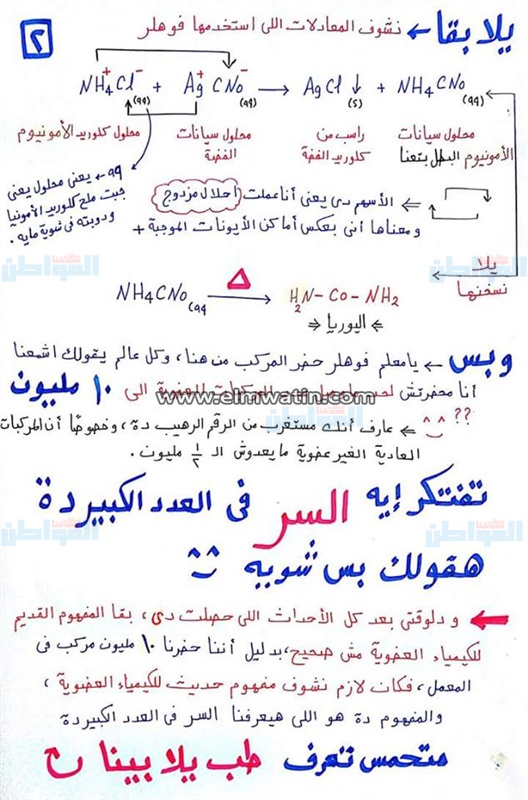 يلا بقا ← نشوف المعادلات اللى استخدمها فوهلر
٢
NH4Cl(aq) + AgCNO(aq) → AgCl↓(s) + NH4CNO(aq)
+ - + -
محلول سيانات الأمونيوم البطل بتعنا
راسب من كلوريد الفضة
محلول سيانات الفضة
محلول كلوريد الأمونيوم
⇐ الأسهم دى يعنى أنا عملت احلال مزدوج
ومعناها أنى بعكس أماكن الأيونات الموجبة +
aq ← يعنى محلول يعنى
جبت ملح كلوريد الأمونيا
ودوبته فى شوية مايه.
المواطن
المواطن
يلا
نسخنها
NH4CNO(aq Δ→ H2N-CO-NH2
« اليوريا »
وبس ← يا معلم فوهلر حضر المركب من هنا، وكل عالم يقولك اشمعنا
أنا محضرتش المركبات العضوية الى ١٠ مليون
www.elmwatin.com
المواطن
??
⇐ عارف أنك مستغرب من الرقم الرهيب دة، وخصوصًا أن المركبات
العادية الغير عضوية ما يعدوش الـ ½ مليون.
تفتكر إيه السر فى العدد الكبير دة
المواطن
المواطن
هقولك بس شويه
← ودلوقتى بعد كل الأحداث اللى حصلت دى، بقا المفهوم القديم
للكيمياء العضوية مش صحيح، بدليل أننا حضرنا ١٠ مليون مركب فى
المعمل، فكان لازم نشوف مفهوم حديث للكيمياء العضوية،
والمفهوم دة هو اللى هيعرفنا السر فى العدد الكبير دة
متحمس تعرف طب يلا بينا